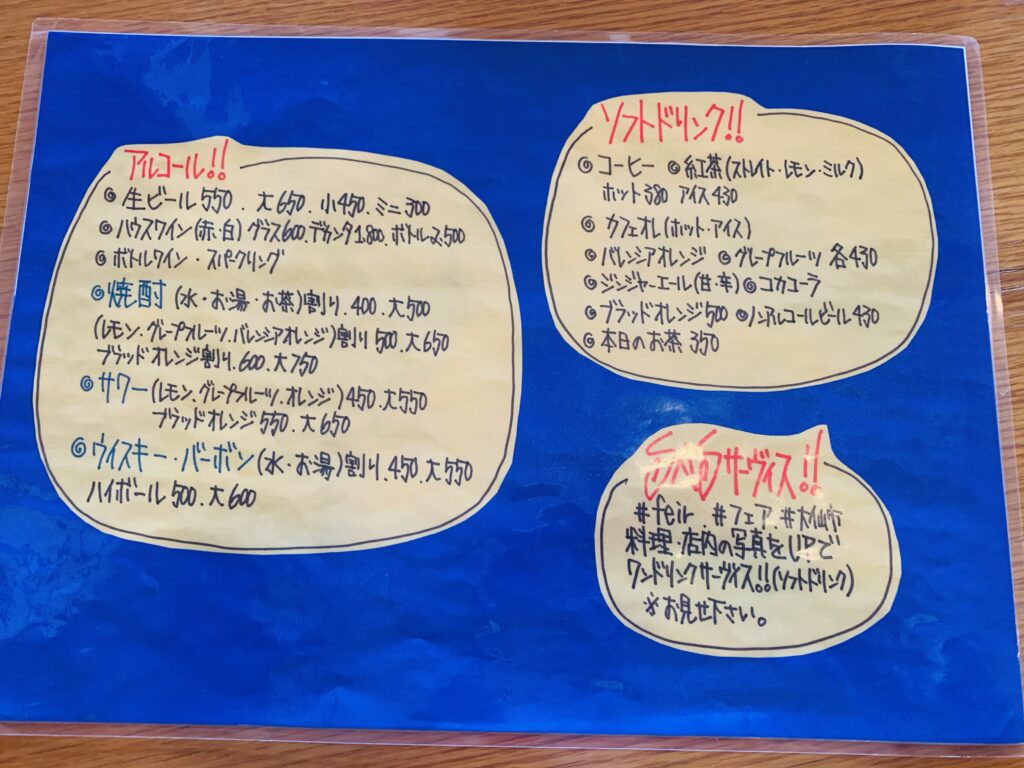 アルコール!!
◎生ビール550.大650.小450.ミニ300
◎ハウスワイン(赤・白)グラス600.デカンタ1.800.ボトル2.500
◎ボトルワイン・スパークリング
◎焼酎(水・お湯・お茶)割り.400.大500
(レモン.グレープフルーツ.バレンシアオレンジ)割り500.大650
ブラッドオレンジ割り.600.大750
◎サワー(レモン.グレープフルーツ.オレンジ)450.大550
ブラッドオレンジ550.大650
◎ウイスキー・バーボン(水・お湯)割り.450.大550
ハイボール500.大600
ソフトドリンク!!
◎コーヒー ◎紅茶(ストレイト・レモン・ミルク)
ホット380 アイス430
◎カフェオレ(ホット・アイス)
◎バレンシアオレンジ ◎グレープフルーツ 各430
◎ジンジャーエール(甘・辛)◎コカコーラ
◎ブラッドオレンジ500 ◎ノンアルコールビール430
◎本日のお茶350
サーヴィス!!
#feir #フェア #大仙市
料理.店内の写真をUPで
ワンドリンクサーヴィス!!(ソフトドリンク)
※お見せ下さい。